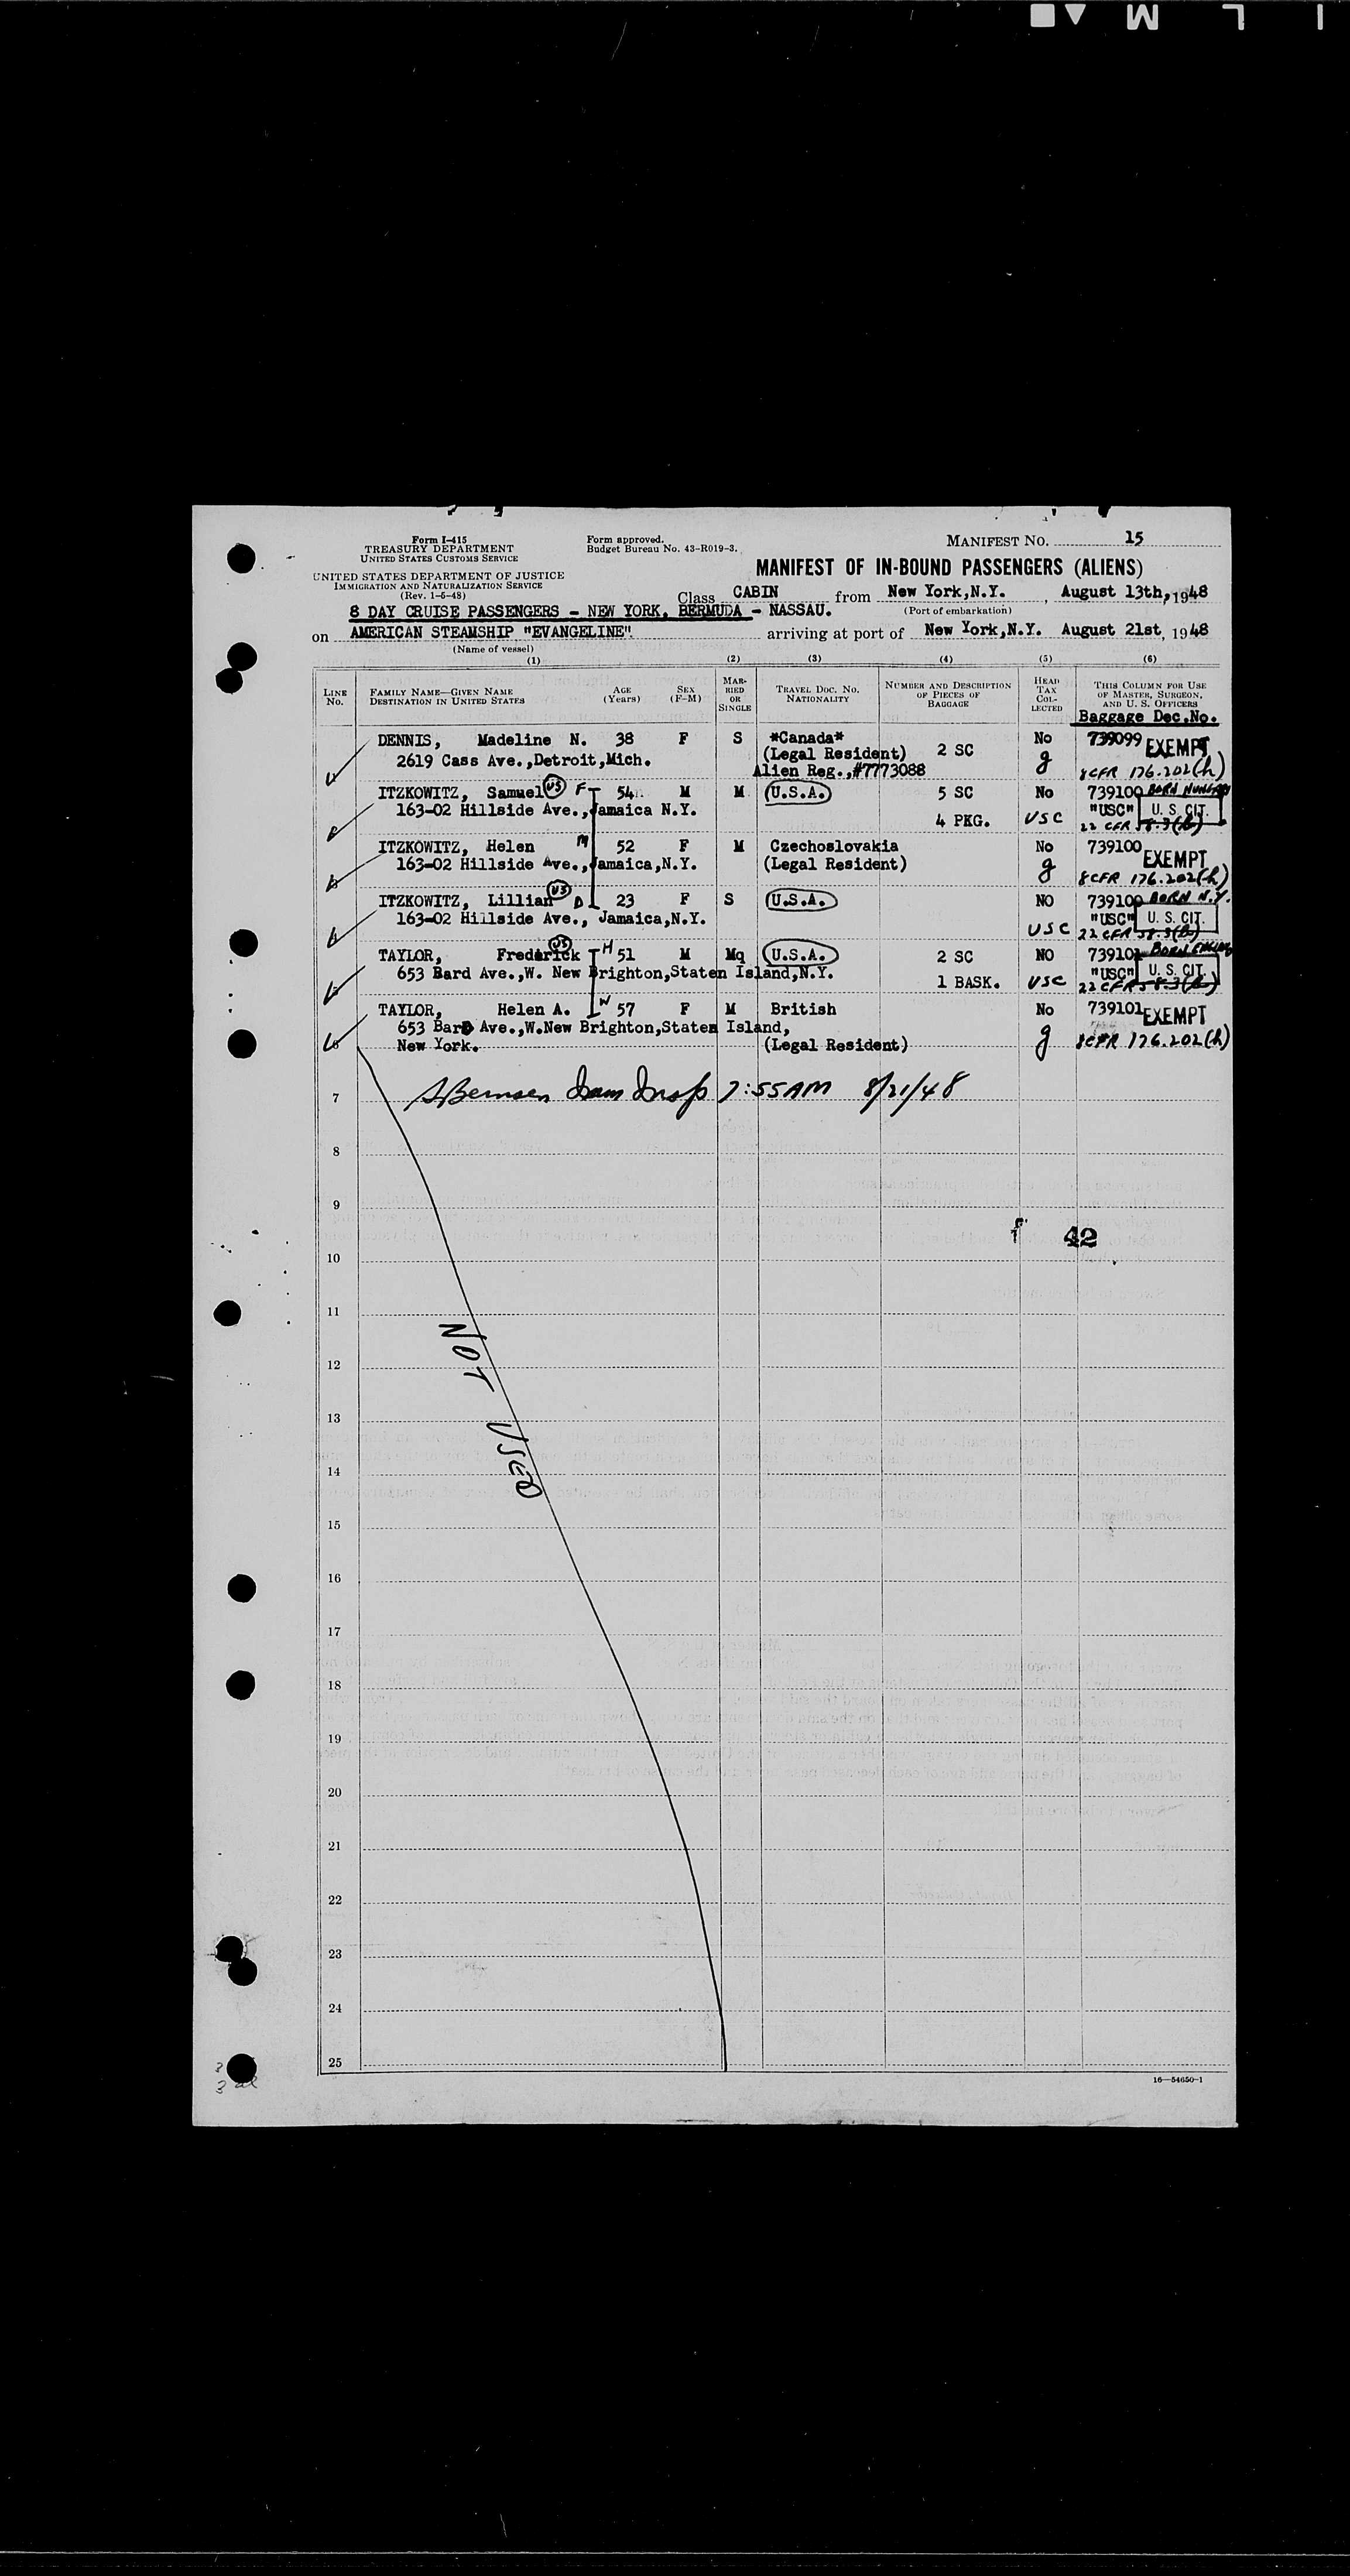 Form I-415
TREASURY DEPARTMENT
UNITED STATES CUSTOMS SERVICE
UNITED STATES DEPARTMENT OF JUSTICE
IMMIGRATION AND NATURALIZATION SERVICE
(Rev. 1-6-48)
Form approved.
Budget Bureau No. 43-R019-3.
MANIFEST NO. 15
MANIFEST OF IN-BOUND PASSENGERS (ALIENS)
Class CABIN from New York, N.Y. , August 13th, 1948
8 DAY CRUISE PASSENGERS - NEW YORK, BERMUDA - NASSAU. (Port of embarkation)
on AMERICAN STEAMSHIP "EVANGELINE" arriving at port of New York, N.Y. August 21st, 1948
(Name of vessel)
(1) (2) (3) (4) (5) (6)
LINE NO. FAMILY NAME—GIVEN NAME DESTINATION IN UNITED STATES AGE (Years) SEX (F-M) MARRIED OR SINGLE TRAVEL DOC. NO. NATIONALITY NUMBER AND DESCRIPTION OF PIECES OF BAGGAGE HEAD TAX COLLECTED THIS COLUMN FOR USE OF MASTER, SURGEON, AND U. S. OFFICERS
Baggage Dec. No.
DENNIS, Madeline N. 38 F S *Canada* No 739099 EXEMPT
2619 Cass Ave., Detroit, Mich. (Legal Resident) 2 SC
Alien Reg., #7773088 g 8 CFR 176.202(h)
ITZKOWITZ, Samuel US F 54 M M U.S.A. 5 SC No 739100 BORN HUNGARY
163-02 Hillside Ave., Jamaica N.Y. 4 PKG. USC "USC" U. S. CIT.
22 CFR 58.3(b)
ITZKOWITZ, Helen M 52 F M Czechoslovakia No 739100 EXEMPT
163-02 Hillside Ave., Jamaica, N.Y. (Legal Resident) g 8 CFR 176.202(h)
ITZKOWITZ, Lillian US D 23 F S U.S.A. NO 739100 BORN N.Y.
163-02 Hillside Ave., Jamaica, N.Y. USC "USC" U. S. CIT.
22 CFR 58.3(b)
TAYLOR, Frederick US H 51 M Mq U.S.A. 2 SC NO 739101 BORN ENGLAND
653 Bard Ave., W. New Brighton, Staten Island, N.Y. 1 BASK. USC "USC" U. S. CIT.
22 CFR 58.3(b)
TAYLOR, Helen A. W 57 F M British No 739101 EXEMPT
653 Bard Ave., W. New Brighton, Staten Island,
New York. (Legal Resident) g 8 CFR 176.202(h)
7 Imm Insp 7:55 AM 8/21/48
8
9
42
10
11
12
13
NOT USED
14
15
16
17
18
19
20
21
22
23
24
25
16—54650-1